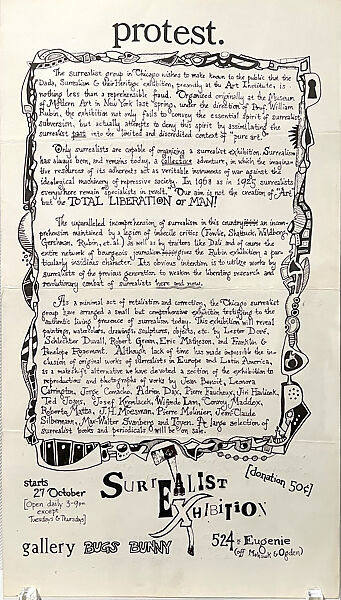 protest.
The surrealist group in Chicago wishes to make known to the public that the
Dada, Surrealism & their Heritage exhibition, presently at the Art Institute, is
nothing less than a reprehensible fraud. Organized originally at the Museum
of Modern Art in New York last Spring, under the direction of Prof. William
Rubin, the exhibition not only fails to convey the essential spirit of surrealist
subversion, but actually attempts to deny this spirit by assimilating the
surrealist past into the limited and discredited context of "pure art."
Only surrealists are capable of organizing a surrealist exhibition. Surrealism
has always been, and remains today, a collective adventure, in which the imagina-
tive resources of its adherents act as veritable instruments of war against the
ideological machinery of repressive society. In 1968 as in 1925 surrealists
everywhere remain specialists in revolt. Our aim is not the creation of Art
but the TOTAL LIBERATION OF MAN.
The unparalleled incomprehension of surrealism in this country an incom-
prehension maintained by a legion of imbecile critics (Fowlie, Shattuck, Waldberg,
Gershman, Rubin, et. al.) as well as by traitors like Dali and of course the
entire network of bourgeois journalism gives the Rubin exhibition a par-
ticularly insidious character. Its obvious intention is to utilize works by
surrealists of the previous generation to weaken the liberating research and
revolutionary combat of surrealists here and now.
As a minimal act of retaliation and correction, the Chicago surrealist
group have arranged a small but comprehensive exhibition testifying to the
authentic living presence of surrealism today. This exhibition will reveal
paintings, watercolors, drawings, sculptures, objects, etc. by Lester Doré,
Schlechter Duvall, Robert Green, Eric Matheson, and Franklin &
Penelope Rosemont. Although lack of time has made impossible the in-
clusion of original works of surrealists in Europe and Latin America,
as a makeshift alternative we have devoted a section of the exhibition to
reproductions and photographs of works by Jean Benoit, Leonora
Carrington, Jorge Camacho, Adrien Dax, Pierre Faucheux, Jiri Havlicek,
Ted Joans, Josef Kremlacek, Wifredo Lam, Conroy Maddox,
Roberta Matta, J.H. Moesman, Pierre Molinier, Jean-Claude
Silbermann, Max-Walter Svanberg and Toyen. A large selection of
surrealist books and periodicals will be on sale.
[donation 50¢]
SURREALIST
EXHIBITION
starts
27 October
[Open daily 3-9pm
except
Tuesdays & Thursdays]
gallery BUGS BUNNY
524 Eugenie
(off Mohawk & Ogden)